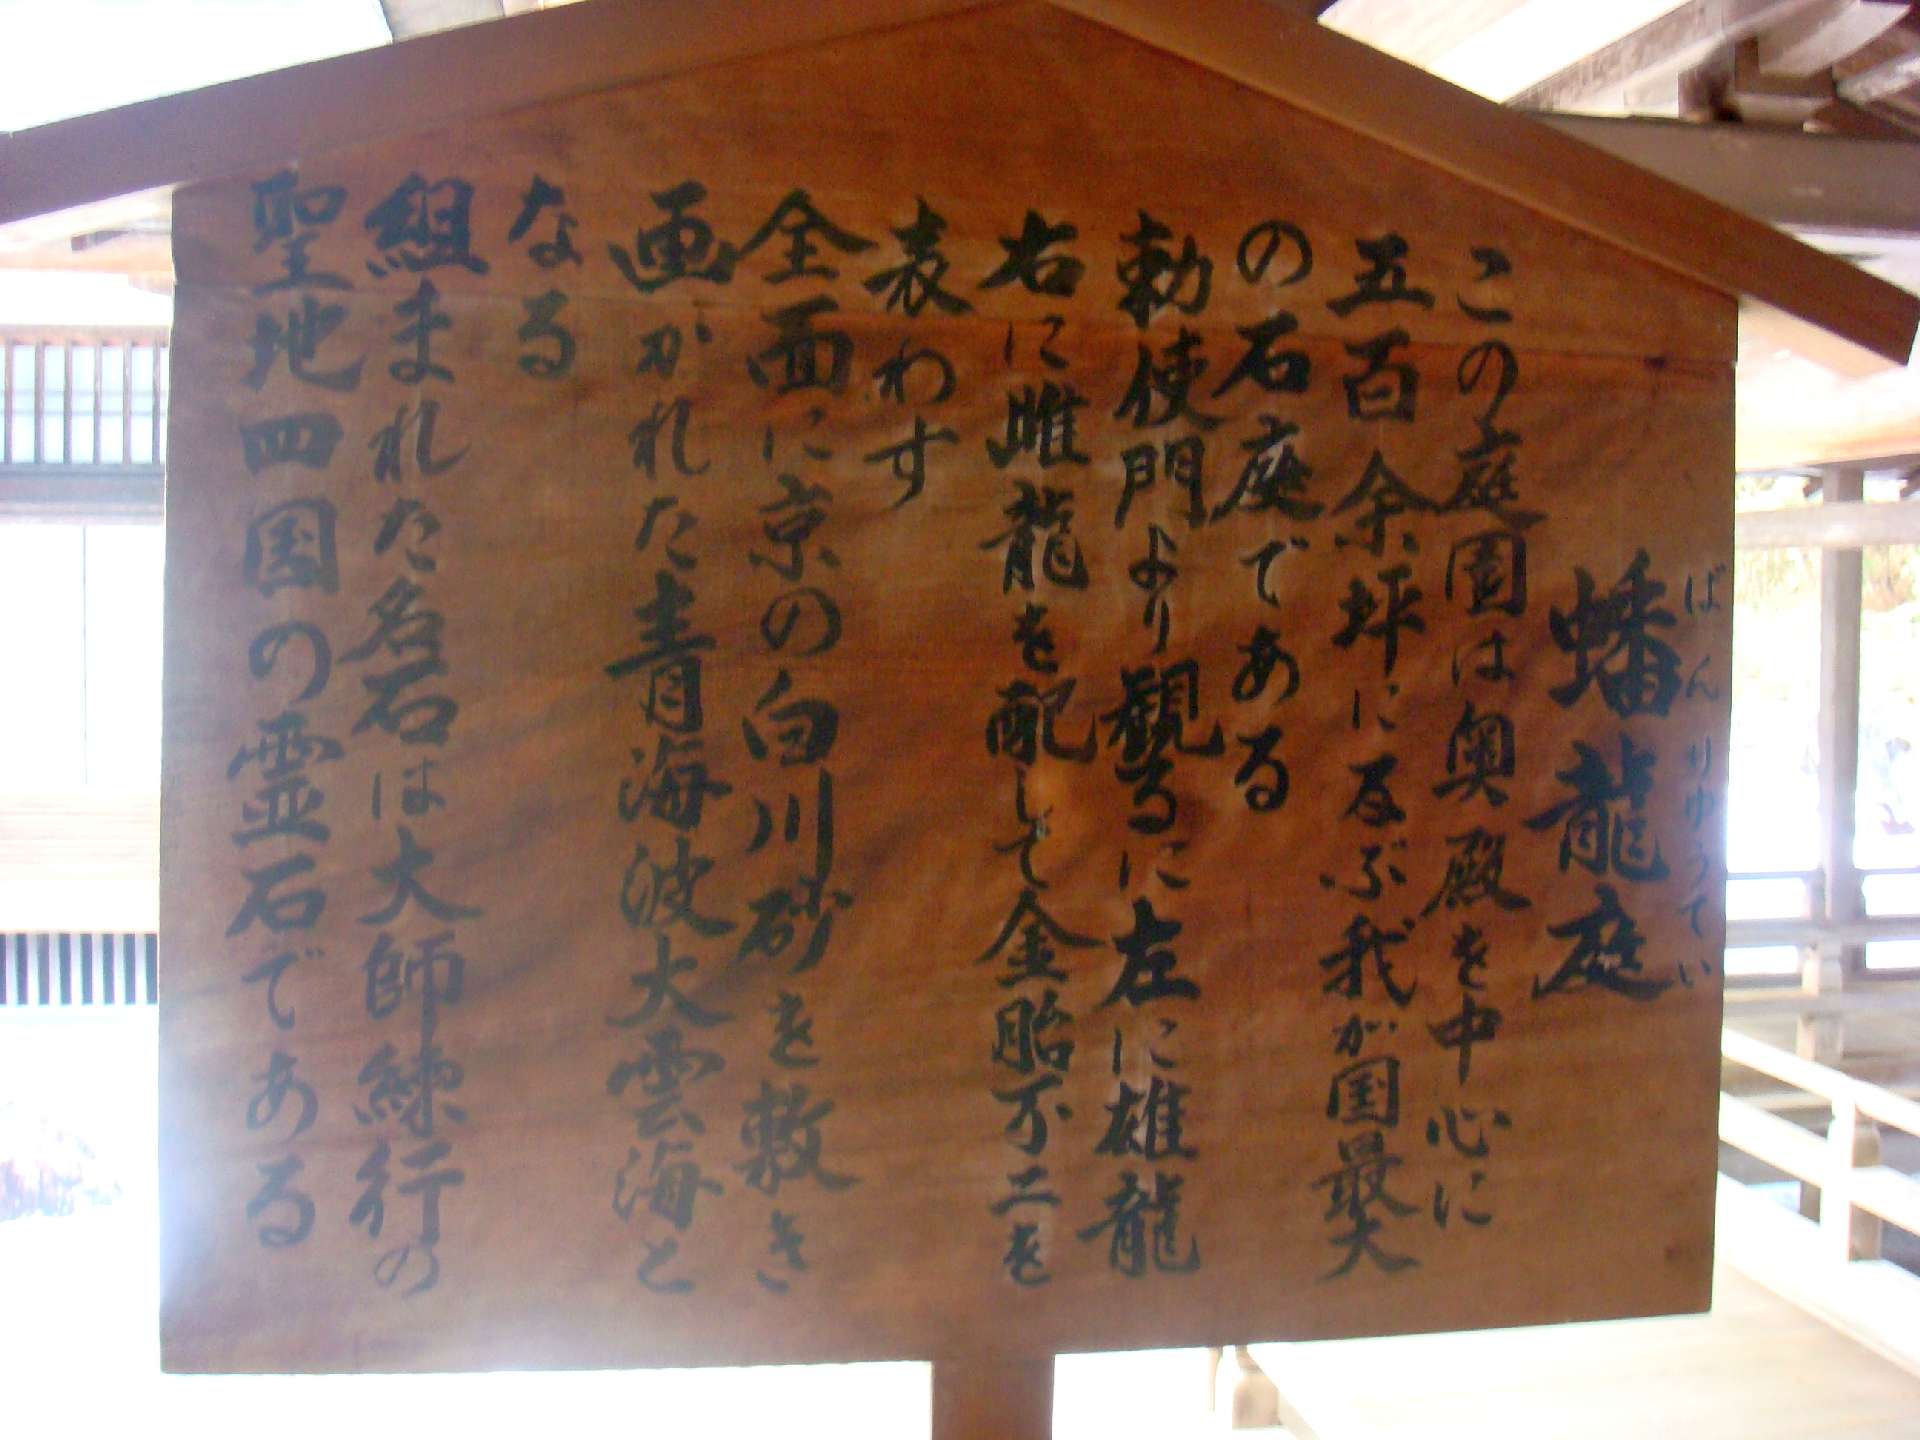 ばんりゅうてい
蟠龍庭
この庭園は奥殿を中心に
五百余坪に及ぶ我が国最大
の石庭である
勅使門より観るに左に雄龍
右に雌龍を配して金胎不二を
表わす
全面に京の白川砂を敷き
画がかれた青海波大雲海と
なる
組まれた名石は大師練行の
聖地四国の霊石である